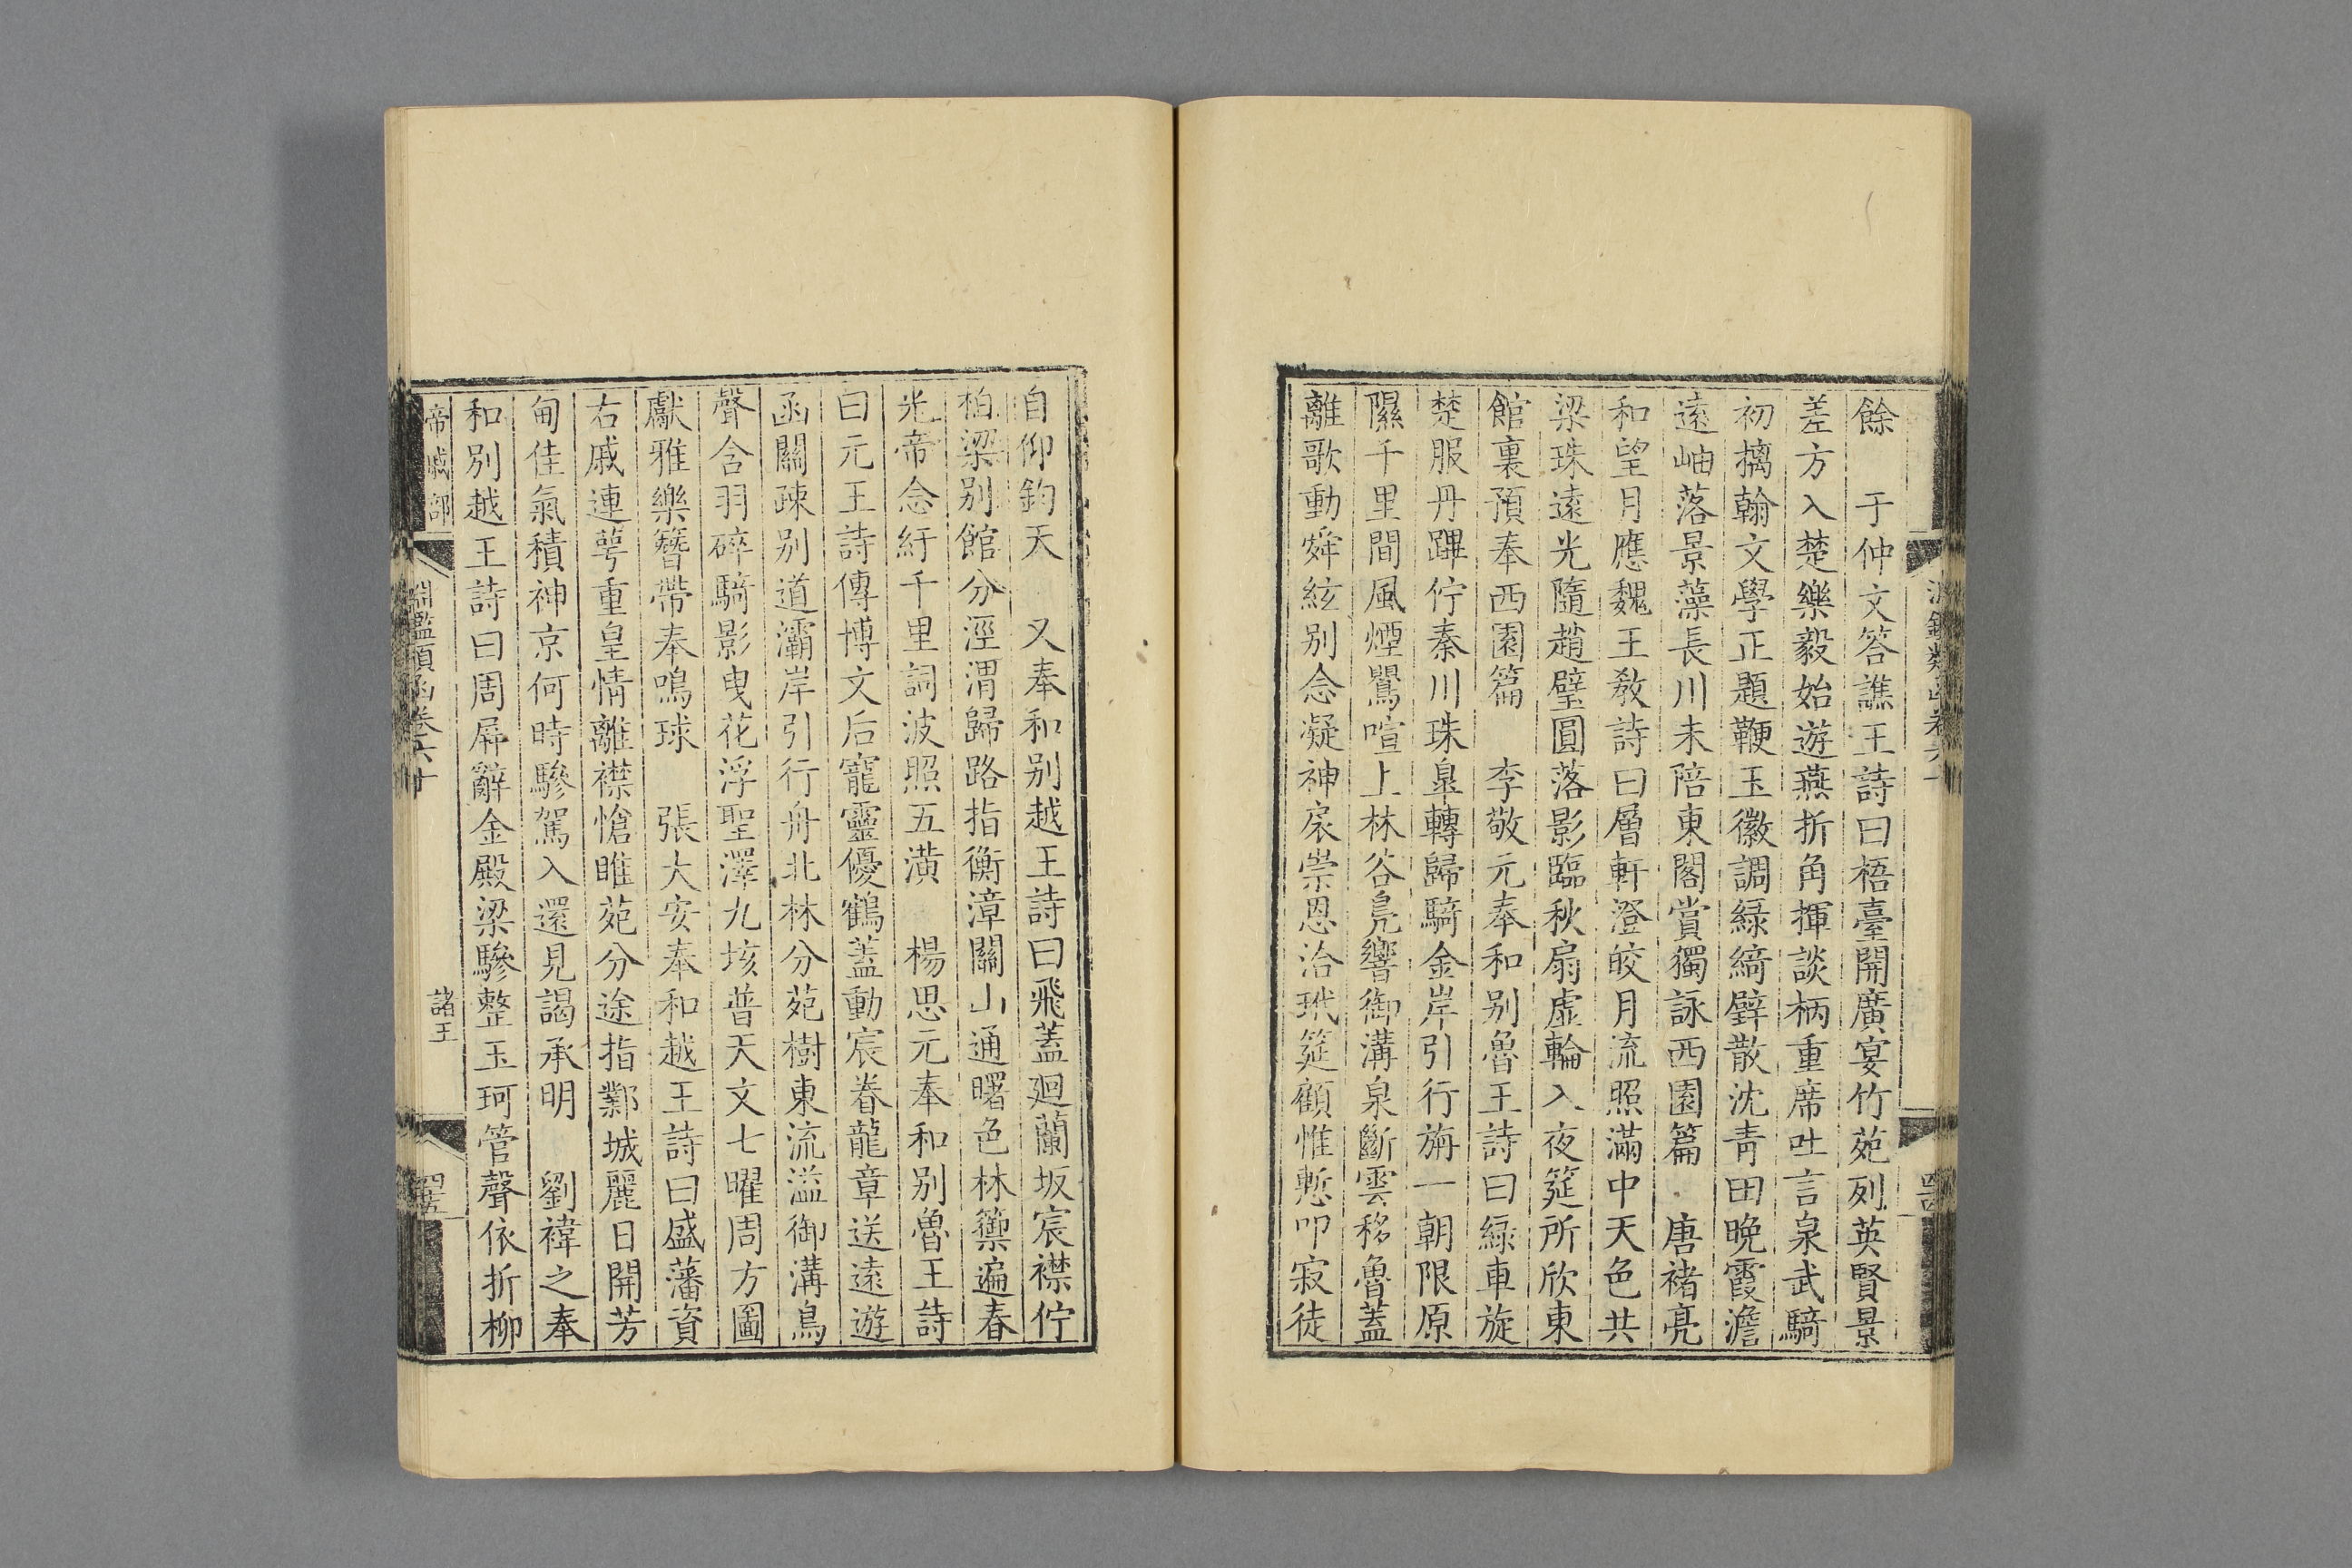 餘　于仲文答譙王詩曰梧臺開廣宴竹苑列英賢景
差方入楚樂毅始遊燕折角揮談柄重席吐言泉武騎
初摛翰文學正題鞭玉徽調綠綺璧散沈青田晚霞澹
遠岫落景藻長川未陪東閣賞獨詠西園篇　唐褚亮
和望月應魏王敎詩曰層軒澄皎月流照滿中天色共
梁珠遠光隨趙璧圓落影臨秋扇虛輪入夜筵所欣東
館裏預奉西園篇　李敬元奉和別魯王詩曰綠車旋
楚服丹蹕佇秦川珠皐轉歸騎金岸引行旃一朝限原
隰千里間風煙鸎喧上林谷鳧響御溝泉斷雲移魯蓋
離歌動舜絃別念凝神扆崇恩洽玳筵顧惟慙叩寂徒
自仰鈞天　又奉和別越王詩曰飛蓋廻蘭坂宸襟佇
柏梁別館分涇渭歸路指衡漳關山通曙色林籞遍春
光帝念紆千里詞波照五潢　楊思元奉和別魯王詩
曰元王詩傳博文后寵靈優鶴蓋動宸眷龍章送遠遊
函關疎別道灞岸引行舟北林分苑樹東流溢御溝鳥
聲含羽碎騎影曳花浮聖澤九垓普天文七曜周方圖
獻雅樂簪帶奉鳴球　張大安奉和越王詩曰盛藩資
右戚連萼重皇情離襟愴睢苑分途指鄴城麗日開芳
甸佳氣積神京何時驂駕入還見謁承明　劉禕之奉
和別越王詩曰周屛辭金殿梁驂整玉珂管聲依折柳
帝戚部　諸王
淵鑑類函卷六十
四五